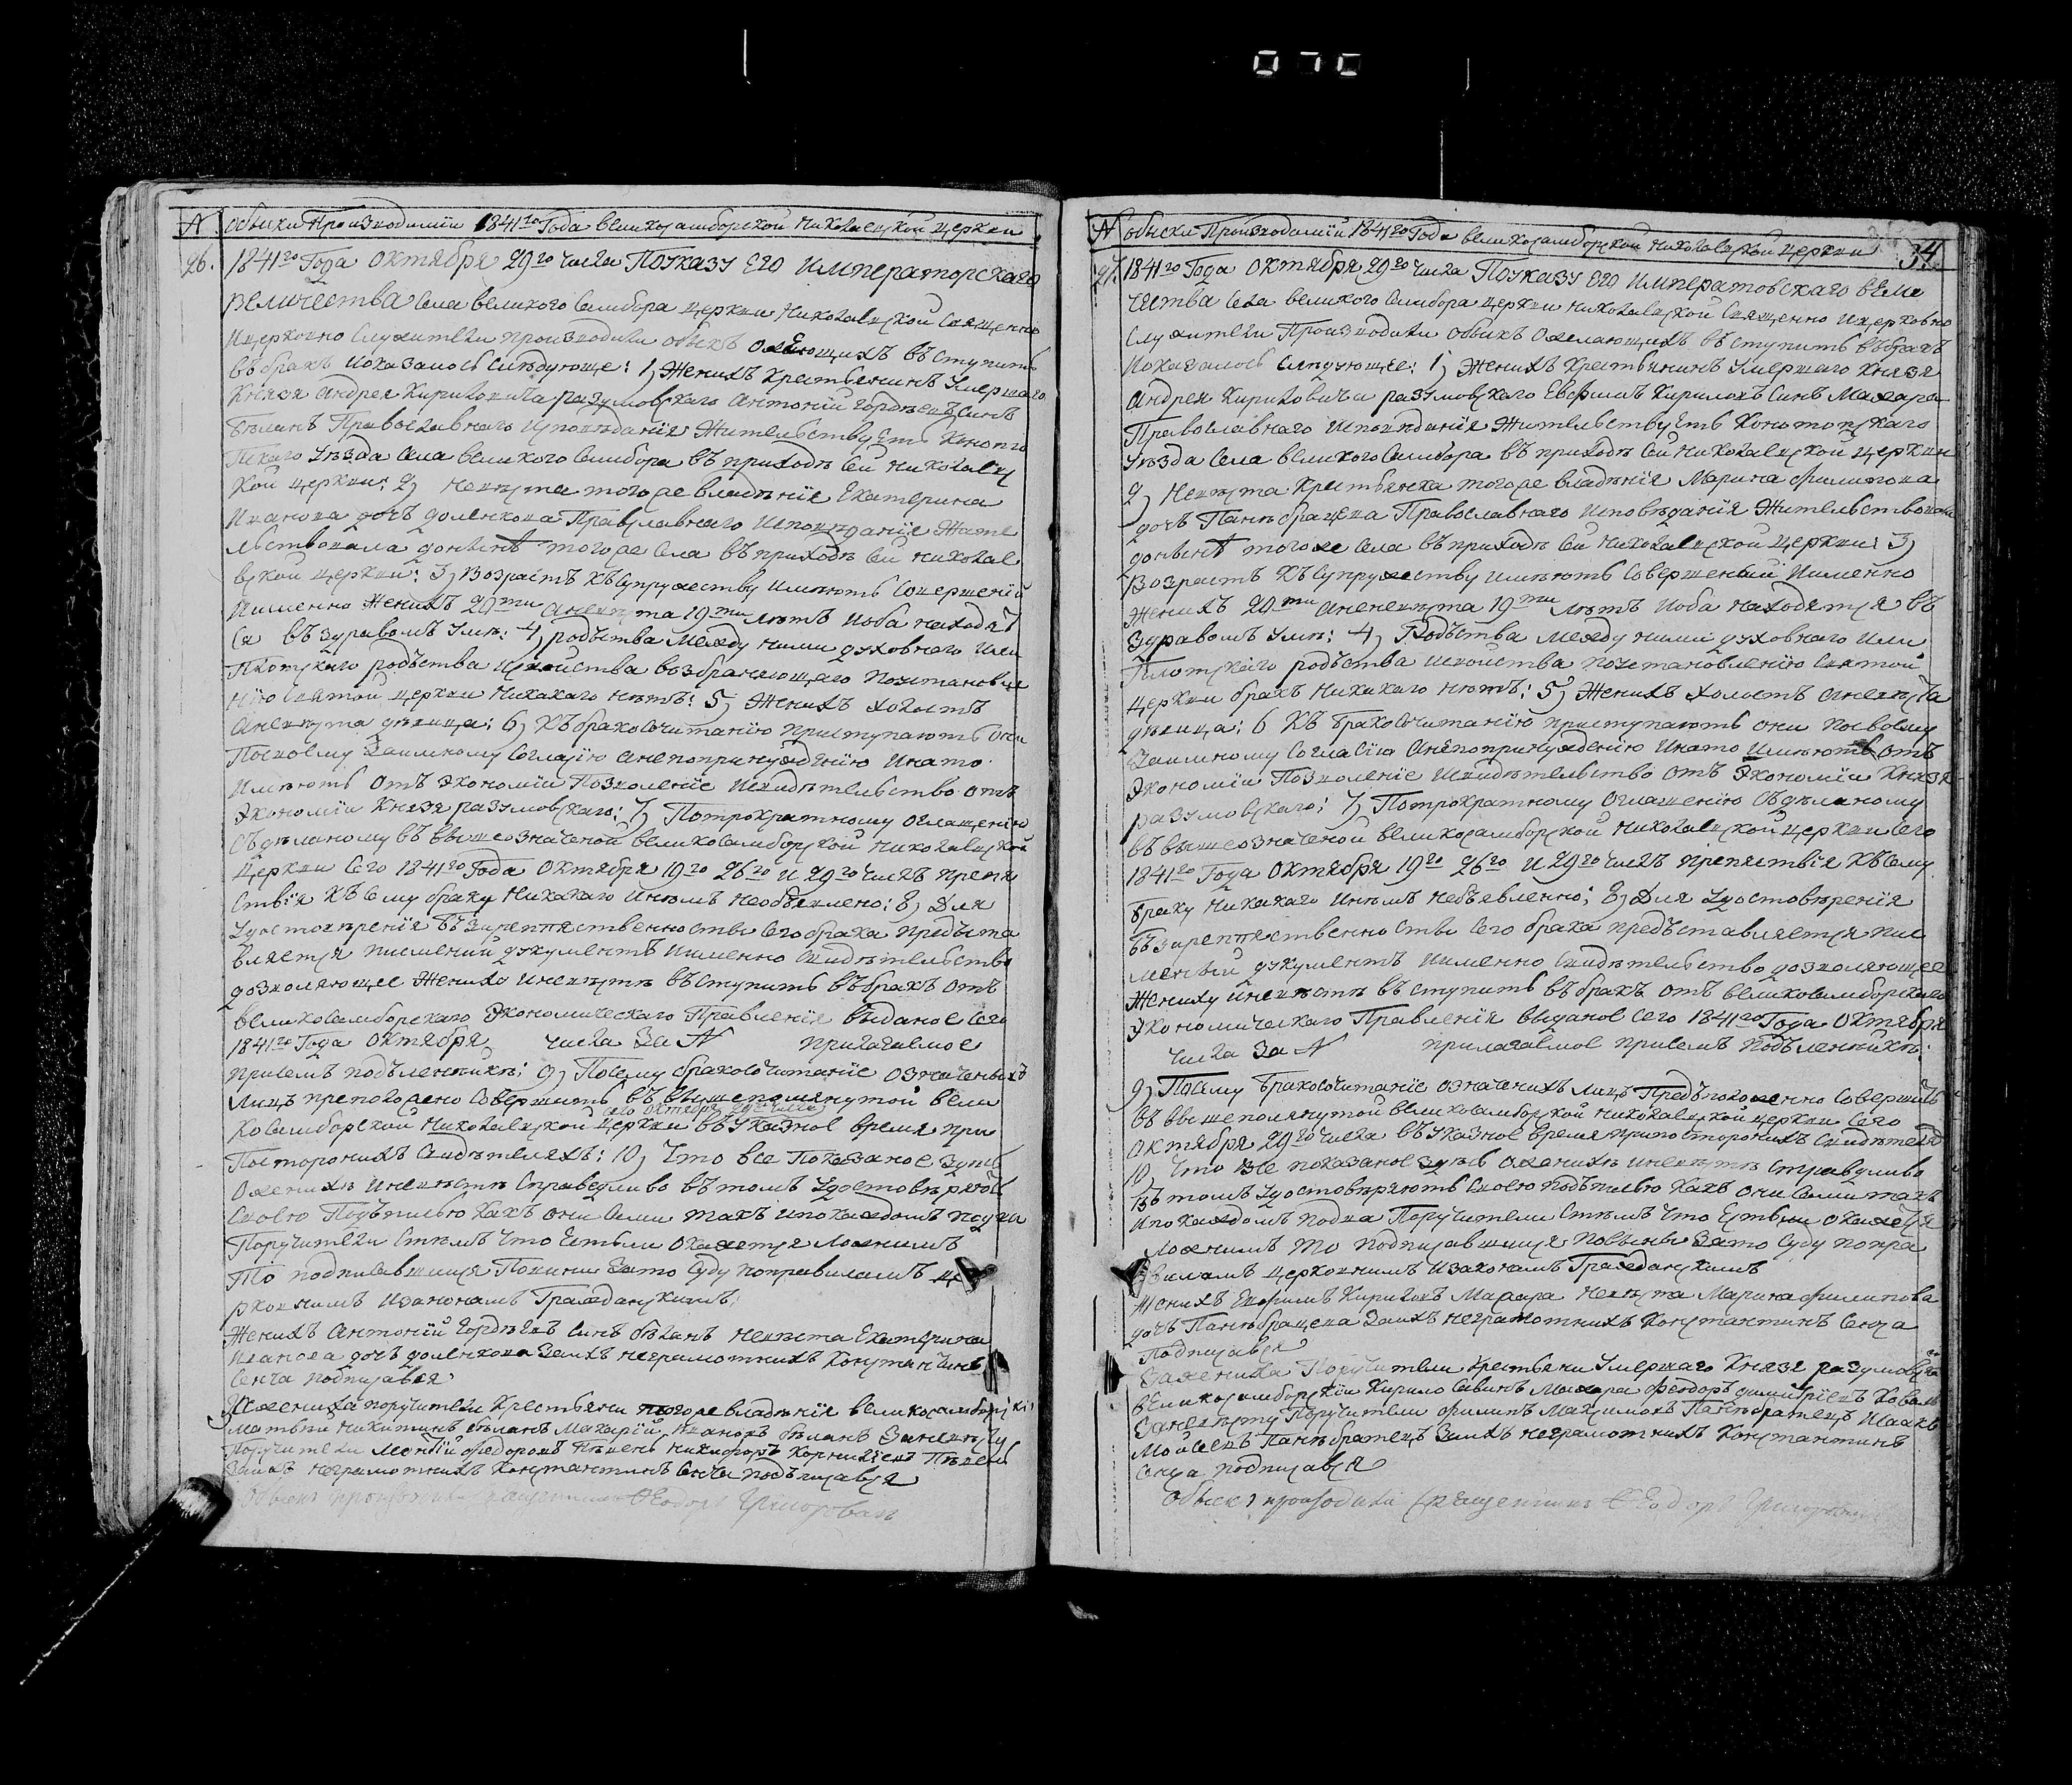 N обыски Производимїи 1841го Года великосамборской Николаевской церкви
26. 1841го Года Октября 29го числа Поуказу Его Императорскаго
Величества села великого Самбора церкви Николаевской Священно
Ицерковно служители производили обыскъ ожелающихъ въступить
въбракъ ипоказалось слѣдующе: 1) Женихъ Крестьянинъ Умершаго
Князя Андрея Кириловича разумовскаго Антонїй гордѣевъ Синъ
Бѣланъ Православнаго исповѣданїя Жительствуетъ Коното
Пскаго уѣзда Села великого Самбора въ приходѣ сей Николаевс
кой церкви: 2) Невѣста тогоже владѣнїя Екатерина
Иванова дочь доленкова Православнаго Исповѣданїя Жите
льствовала донынѣ тогоже Села въ приходѣ сей Николае
вской церкви: 3) Возрастъ Къ Супружеству имѣютъ Совершенїй
Иименно Женихъ 20ти Аневѣста 19ти лѣтъ Иоба находят
ся въ Здравомъ Умѣ: 4) родьства Между ними духовного или
Плотскаго родьства исвойства возбраняющаго Поустановле
нїю Святой церкви Никакаго нѣтъ: 5) Женихъ холостъ
Аневѣста дѣвица: 6) Къ бракосочитанїю приступаютъ они
Посвоему Заимному Согласїю Анепопринужденїю Инато
Имѣютъ Отъ Экономїи Позволенїе Исвидѣтельство отъ
Экономїи Князя разумовскаго: 7) Потрократному Оглашенїю
Сьдѣланому въ вышеозначеной великосамборской Николаевской
Церкви Сего 1841го Года Октября 19го 26го и 29го числъ препя
ствїя Къ Сему браку Никакаго Инѣмъ необъявлено: 8) Для
Удостовѣренїя Беззпрепяственности Сего брака Предъста
вляется писменїй документъ Иименно Свидѣтельство
дозволяющее Жениху Иневѣстѣ въступить въ бракъ отъ
великосамборскаго Экономическаго Правленїя выданое Сего
1841го Года Октября числа За N прилагаемое
присемъ подъленникѣ: 9) Посему бракосочитанїе означеныхъ
Лицъ преположено Совершить въ Вышепомянутой вели
косамборской Николаевской церкви сего октября 29го числа въ Указное время при
Постороныхъ Свидѣтеляхъ: 10) Что все Показаное здѣсь
Ожениху Иневѣстѣ Справедливо вътомъ Удостовѣряютъ
Своею Подъписью какъ они Сами такъ ипокаждомъ подва
Поручители Стѣмъ Что Естьли Окажется Ложнимъ
То подписавшиися Повинни Зато Суду поправиламъ Це
рковнимъ Изаконамъ Гражданскимъ:
Женихъ Антонїй Гордѣевъ Синъ бѣланъ Невѣста Екатерина
Иванова дочъ доленкова Заихъ неграмотнихъ Константинъ
Сенча подписався
Ужениха поручители Крестьяни тогоже владѣнїя великосамборскїи
Матвѣй Никитинъ бѣланъ Макарїй Ивановъ бѣланъ Заневѣсту
Поручители Федоровъ Никифоръ
Заихъ неграмотнихъ Константинъ Сенча подъписався
Обыскъ производилъ священникъ Феодоръ
N обыски Производимїй 1841го Года великосамборской Николаевской церкви 34
27. 1841го Года Октября 29го числа Поуказу Его Императовскаго веле
чества Села великого Самбора церкви Николаевской Священно ицерковно
Служители Производили обыскъ Ожелающихъ въступить въбракъ
Показалось Слѣдующее: 1) Женихъ Крестьянинъ Умершаго Князя
Андрея Кириловича разумовскаго Евфимъ Кириловъ Синъ Махара
Православнаго исповѣданїя Жительствуетъ Конотопскаго
уѣзда Села великого Самбора въ приходѣ сей Николаевской церкви
2) Невѣста Крестьянка тогоже владѣнїя Марина филипова
дочъ Панѣбрацева Православнаго исповѣданїя Жительствовала
донынѣ тогоже села въприходѣ Сей Николаевской церкви: 3)
Возрастъ Къ Супружеству имѣютъ Совершеный Иименно
Женихъ 20ти Аненевѣста 19ти лѣтъ Иоба находятся въ
Здравомъ Умѣ: 4) Родьства Между ними духовнаго или
Плотскаго родьства исвойства поустановленїю Святой
церкви бракъ Никакаго нѣтъ: 5) Женихъ холостъ Аневѣста
дѣвица: 6 Къ бракосочитанїю приступаютъ они Посвоему
Заимному Согласїю Анепопринужденїю Инато Имѣютъ отъ
Экономїи Позволенїе Исвидѣтельство отъ Экономїи Князя
разумовскаго: 7) Потрократному Оглашенїю Съдѣланому
въ вышеозначеной великосамборской Николаевской церкви Сего
1841го Года Октября 19го 26го и 29го числъ препяствїя Къ Сему
браку Никакаго Инѣмъ небъевленно: 8) Для Удостовѣренїя
Беззпрепяственности Сего брака предъставляется пис
меный документъ Иименно Свидѣтельство дозволяющее
Жениху Иневѣстѣ въступить въбракъ отъ великосамборскаго
Экономическаго Правленїя выданое Сего 1841го Года Октября
числа За N прилагаемое присемъ подъленникѣ:
9) Посему бракосочитанїе означенихъ лицъ Предъположенно Совершить
въ вышепомянутой великосамборской Николаевской церкви Сего
Октября 29го числа въ Указное время припостороныхъ Свидѣтеля
10 Что Все показаное здѣсь Оженихѣ Иневѣстѣ Справдливо
Въ томъ Удостовѣряютъ Своею подъписью Какъ они Сами такъ
Ипокаждомъ подва Поручители Стѣмъ что Естьли окажется
Ложнимъ то подписавшиися Повены Зато Суду попра
виламъ церковнимъ Изаконамъ Гражданскимъ
Женихъ Евфимъ Кириловъ Махара Невѣста Марина филипова
дочъ Панѣбрацева Заихъ неграмотнихъ Константинъ Сенча
Подписався
Зажениха Поручители Крестьяни Умершаго Князя разумовска
великосамборскїи Кирило Савинъ Махара Феодоръ димитрїевъ Коваль
Заневѣсту Поручители филипъ Максимовъ Панѣбратецъ Исаакъ
Мойсеевъ Панѣбратецъ Заихъ неграмотнихъ Константинъ
Сенча подписався
Обыскъ производилъ священникъ Феодоръ